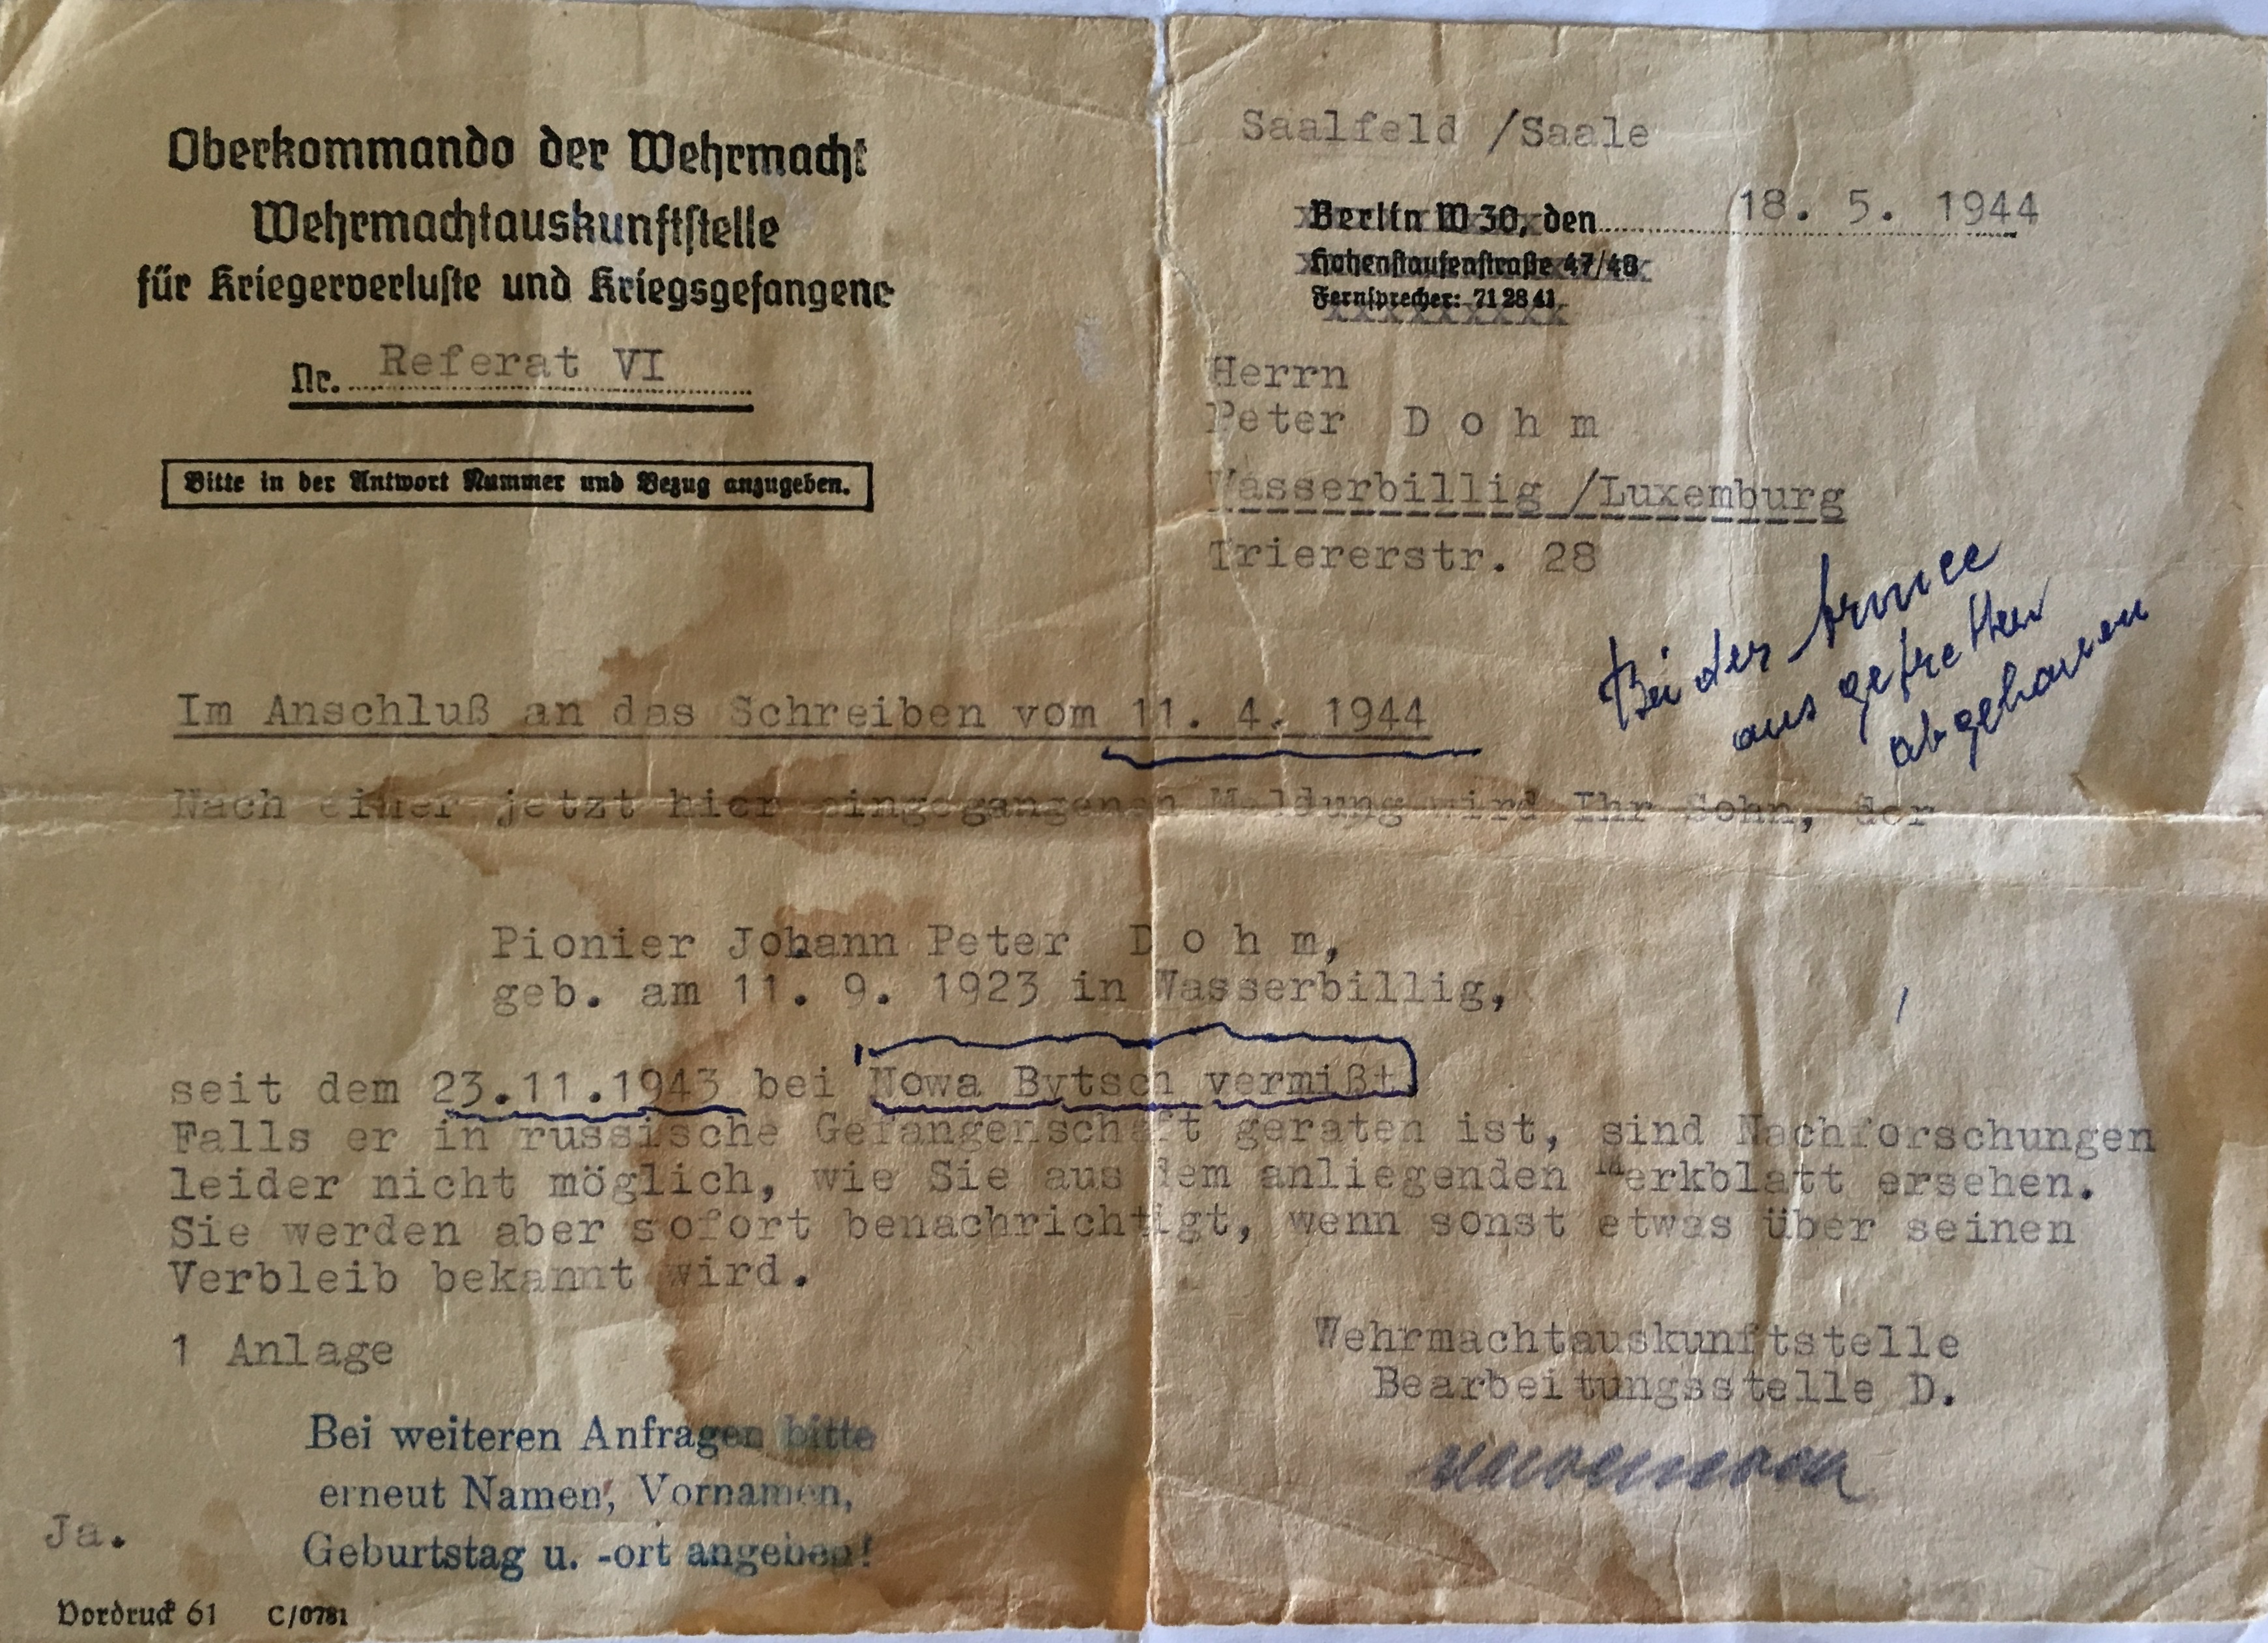 Oberkommando der Wehrmacht
Wehrmachtauskunftstelle
für Kriegerverluste und Kriegsgefangene
Nr. Referat VI
Bitte in der Antwort Nummer und Bezug anzugeben.
Saalfeld /Saale
Berlin W 30, den 18. 5. 1944
Hohenstaufenstraße 47/48
Fernsprecher: 71 28 41
Herrn
Peter D o h m
Wasserbillig /Luxemburg
Triererstr. 28
Bei der Armee
aus getretten
abgehauen
Im Anschluß an das Schreiben vom 11. 4. 1944
Nach einer jetzt hier eingegangenen Meldung wird Ihr Sohn, der
Pionier Johann Peter D o h m,
geb. am 11. 9. 1923 in Wasserbillig,
seit dem 23.11.1943 bei Nowa Bytsch vermißt.
Falls er in russische Gefangenschaft geraten ist, sind Nachforschungen
leider nicht möglich, wie Sie aus dem anliegenden Merkblatt ersehen.
Sie werden aber sofort benachrichtigt, wenn sonst etwas über seinen
Verbleib bekannt wird.
1 Anlage
Wehrmachtauskunftstelle
Bearbeitungsstelle D.
Bei weiteren Anfragen bitte
erneut Namen, Vornamen,
Geburtstag u. -ort angeben!
Ja.
Vordruck 61 C/0781